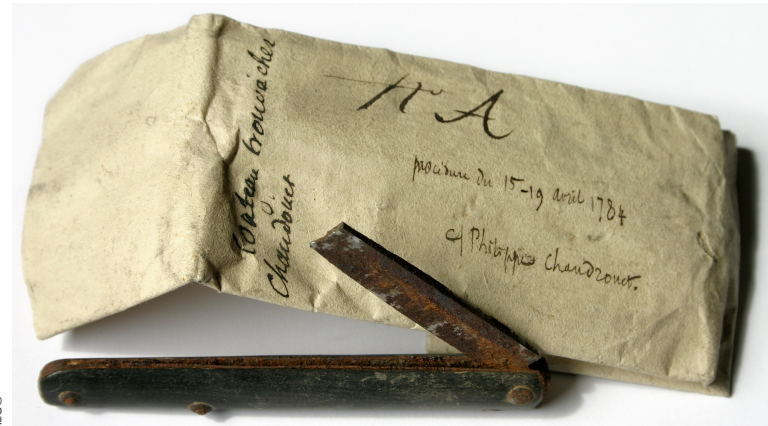 Couteau trouvé chez
Chaudouet
No A
procédure du 15-19 avril 1784
c/ Philippe Chaudrouet.